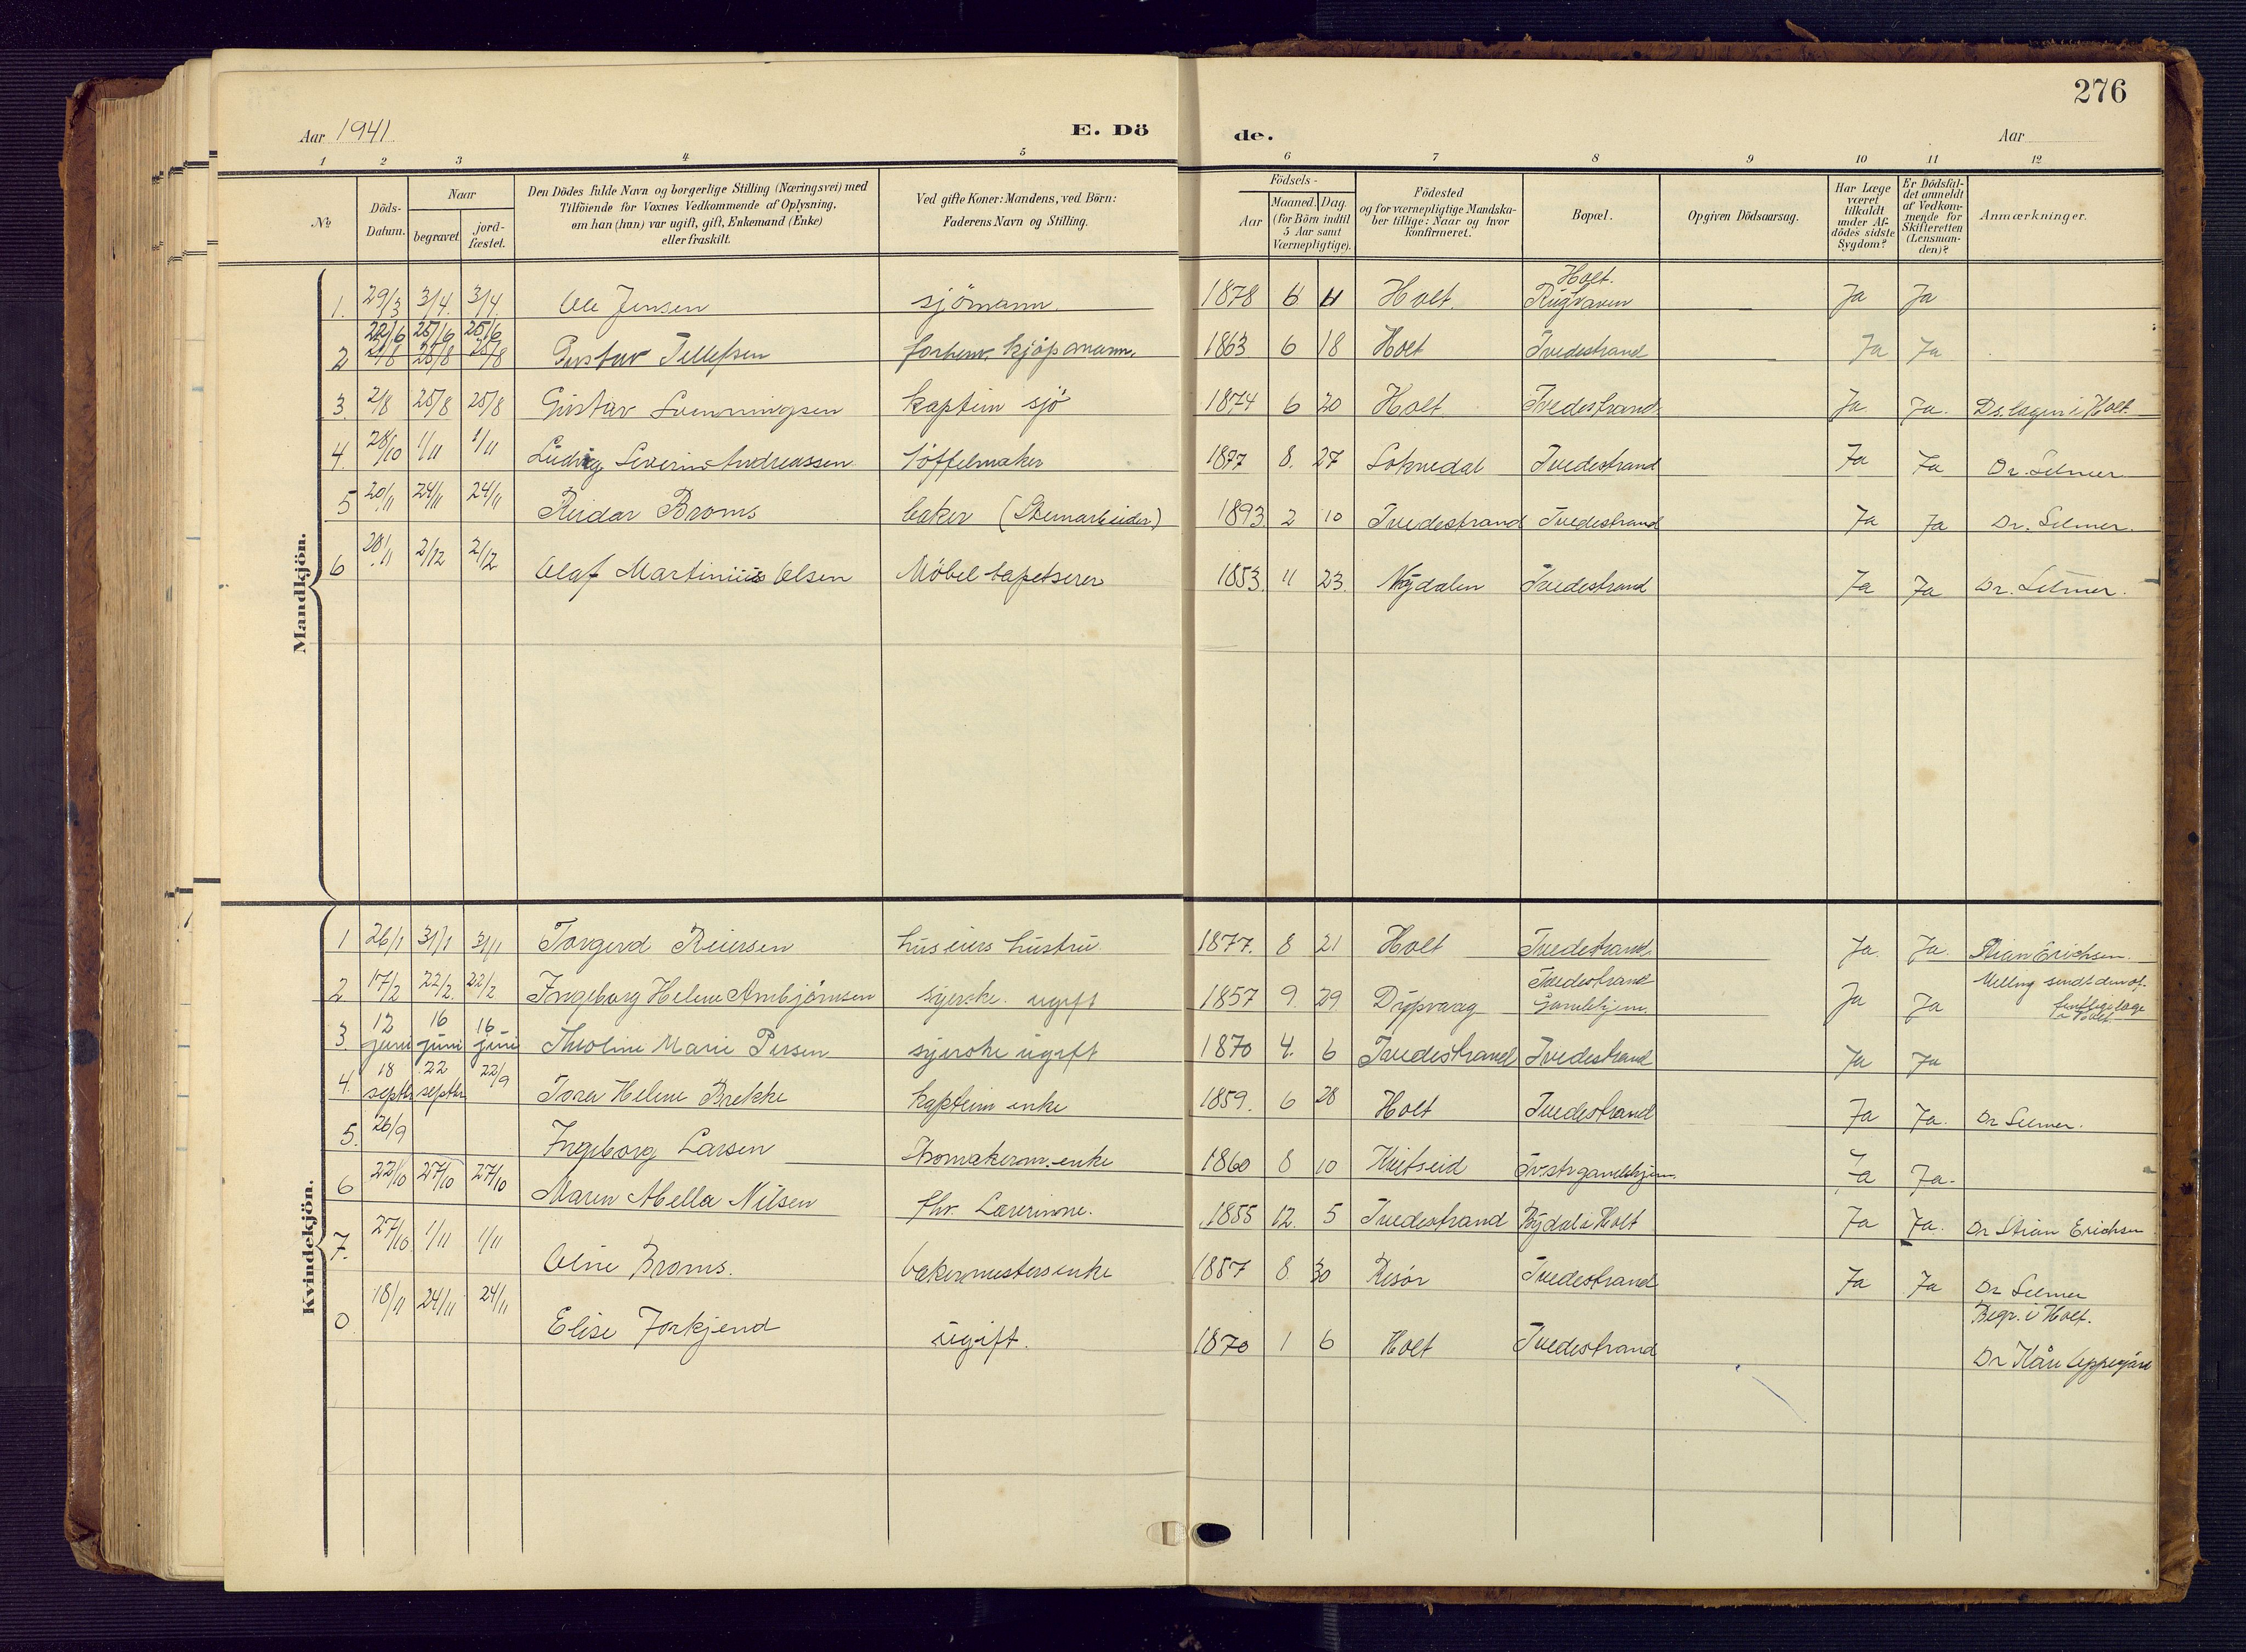 276
Aar 1941 E. Dö de. Aar
1 2 3 4 5 6 7 8 9 10 11 12
№ Döds-Datum. Naar begravet. jordfæstet. Den Dödes fulde Navn og borgerlige Stilling (Næringsvei) med Tilföiende for Voxnes Vedkommende af Oplysning, om han (hun) var ugift, gift, Enkemand (Enke) eller fraskilt. Ved gifte Koner: Mandens, ved Börn: Faderens Navn og Stilling. Födsels- Aar Maaned. Dag. (for Börn indtil 5 Aar samt Værnepligtige). Födested og for værnepligtige Mandskaber tillige: Naar og hvor konfirmeret. Bopæl. Opgiven Dödsaarsag. Har Læge været tilkaldt under Afdödes sidste Sygdom? Er Dödsfaldet anmeldt af Vedkommende for Skifteretten (Lensmanden)? Anmærkninger.
Mandkjön.
1. 29/3 3/4. 3/4. Ole Jensen sjömann. 1878 6 4 Holt. Holt. Ja Ja
2 22/6 25/6 25/6 Gustav Tellefsen forhenv. kjöpmann. 1863 6 18 Holt Tvedestrand Ja Ja
3. 2/8 25/8 25/8 Gustav Svenningsen kaptein sjö 1874 6 20 Holt Tvedestrand Ja Ja. i Holt
4. 28/10 1/11 1/11 Ludvig Severin Andreassen töffelmaker 1877 8. 27 Soknedal Tvedestrand Ja Ja Dr. Selmer
5 20/11 24/11 24/11 Reidar Broms baker (Stenarbeider) 1893 2 10 Tvedestrand Tvedestrand Ja Ja Dr. Selmer.
6 28/11 2/12 2/12 Olaf Martinius Olsen Möbeltapetserer 1853. 11 23. Nydalen Tvedestrand Ja Ja Dr. Selmer.
Kvindekjön.
1 26/1 31/1 31/1 Torgerd Reiersen huseiers hustru. 1877. 8 21 Holt Tvedestrand. Ja. Ja. Stian Erichsen.
2 17/2 22/2. 22/2 Ingeborg Helene Ambjörnsen syerske. ugift 1857 9. 29. Dypvaag Tvedestrand Gamlehjem Ja Ja Melling sendt den of-
fentlige læge
i Holt
3. 12 juni 16 juni 16 juni Theoline Marie Persen syerske ugift 1870 4. 6 Tvedestrand Tvedestrand Ja Ja
4. 18 septbr 22 septbr 22/9 Tora Helene Brekke kaptein enke 1859. 6 28 Holt Tvedestrand Ja Ja. Dr Selmer.
5. 26/9 Ingeborg Larsen skomakerm. enke 1860 8 10 Kvitseid Tv.str gamlehjem. Ja Ja.
6 22/10 27/10 27/10 Maren Abella Nilsen fhv. Lærerinne. 1855 12. 5 Tvedestrand Bydal i Holt Ja Ja. Dr Stian Erichsen
7. 27/10. 1/11 1/11 Oline Broms. bakermesters enke 1857 8. 30 Risør Tvedestrand Ja Ja Dr Selmer
Begr. i Holt.
18/11 24/11 24/11 Elise Forkjend ugift. 1870 1 6 Holt Tvedestrand Dr Kåre